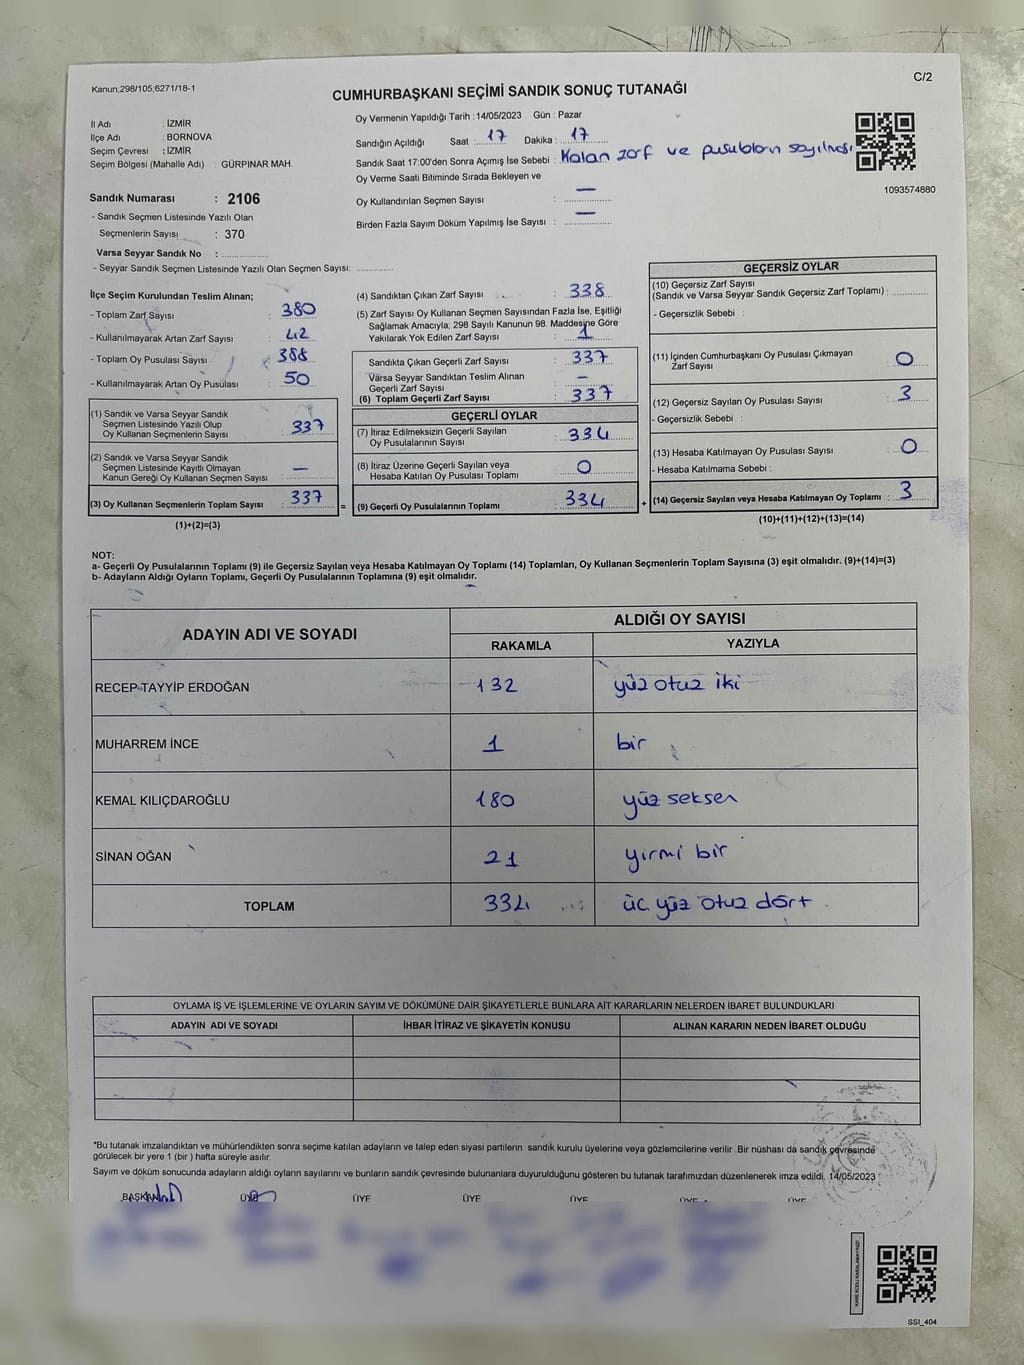 C/2
Kanun,298/105,6271/18-1
CUMHURBAŞKANI SEÇİMİ SANDIK SONUÇ TUTANAĞI
İl Adı : İZMİR
İlçe Adı : BORNOVA
Seçim Çevresi : İZMİR
Seçim Bölgesi (Mahalle Adı) : GÜRPINAR MAH.
Sandık Numarası : 2106
- Sandık Seçmen Listesinde Yazılı Olan
Seçmenlerin Sayısı : 370
Varsa Seyyar Sandık No :
- Seyyar Sandık Seçmen Listesinde Yazılı Olan Seçmen Sayısı:
Oy Vermenin Yapıldığı Tarih : 14/05/2023 Gün : Pazar
Sandığın Açıldığı Saat : 17 Dakika : 17
Sandık Saat 17:00'den Sonra Açımış İse Sebebi : Kalan zarf ve pusulaların sayılması
Oy Verme Saati Bitiminde Sırada Bekleyen ve
Oy Kullandırılan Seçmen Sayısı : —
Birden Fazla Sayım Döküm Yapılmış İse Sayısı : —
1093574880
İlçe Seçim Kurulundan Teslim Alınan;
- Toplam Zarf Sayısı : 380
- Kullanılmayarak Artan Zarf Sayısı : 42
- Toplam Oy Pusulası Sayısı : 388
- Kullanılmayarak Artan Oy Pusulası : 50
(1) Sandık ve Varsa Seyyar Sandık
Seçmen Listesinde Yazılı Olup
Oy Kullanan Seçmenlerin Sayısı : 337
(2) Sandık ve Varsa Seyyar Sandık
Seçmen Listesinde Kayıtlı Olmayan
Kanun Gereği Oy Kullanan Seçmen Sayısı : —
(3) Oy Kullanan Seçmenlerin Toplam Sayısı : 337
(1)+(2)=(3)
(4) Sandıktan Çıkan Zarf Sayısı : 338
(5) Zarf Sayısı Oy Kullanan Seçmen Sayısından Fazla İse, Eşitliği
Sağlamak Amacıyla; 298 Sayılı Kanunun 98. Maddesine Göre
Yakılarak Yok Edilen Zarf Sayısı : 1
Sandıkta Çıkan Geçerli Zarf Sayısı : 337
Varsa Seyyar Sandıktan Teslim Alınan
Geçerli Zarf Sayısı : —
(6) Toplam Geçerli Zarf Sayısı : 337
GEÇERLİ OYLAR
(7) İtiraz Edilmeksizin Geçerli Sayılan
Oy Pusulalarının Sayısı : 334
(8) İtiraz Üzerine Geçerli Sayılan veya
Hesaba Katılan Oy Pusulası Toplamı : 0
= (9) Geçerli Oy Pusulalarının Toplamı : 334 +
GEÇERSİZ OYLAR
(10) Geçersiz Zarf Sayısı
(Sandık ve Varsa Seyyar Sandık Geçersiz Zarf Toplamı) :
- Geçersizlik Sebebi :
(11) İçinden Cumhurbaşkanı Oy Pusulası Çıkmayan
Zarf Sayısı : 0
(12) Geçersiz Sayılan Oy Pusulası Sayısı : 3
- Geçersizlik Sebebi :
(13) Hesaba Katılmayan Oy Pusulası Sayısı : 0
- Hesaba Katılmama Sebebi :
(14) Geçersiz Sayılan veya Hesaba Katılmayan Oy Toplamı : 3
(10)+(11)+(12)+(13)=(14)
NOT:
a- Geçerli Oy Pusulalarının Toplamı (9) ile Geçersiz Sayılan veya Hesaba Katılmayan Oy Toplamı (14) Toplamları, Oy Kullanan Seçmenlerin Toplam Sayısına (3) eşit olmalıdır. (9)+(14)=(3)
b- Adayların Aldığı Oyların Toplamı, Geçerli Oy Pusulalarının Toplamına (9) eşit olmalıdır.
ADAYIN ADI VE SOYADI
ALDIĞI OY SAYISI
RAKAMLA YAZIYLA
RECEP TAYYİP ERDOĞAN 132 yüz otuz iki
MUHARREM İNCE 1 bir
KEMAL KILIÇDAROĞLU 180 yüz seksen
SİNAN OĞAN 21 yirmi bir
TOPLAM 334 üç yüz otuz dört
OYLAMA İŞ VE İŞLEMLERİNE VE OYLARIN SAYIM VE DÖKÜMÜNE DAİR ŞİKAYETLERLE BUNLARA AİT KARARLARIN NELERDEN İBARET BULUNDUKLARI
ADAYIN ADI VE SOYADI İHBAR İTİRAZ VE ŞİKAYETİN KONUSU ALINAN KARARIN NEDEN İBARET OLDUĞU
*Bu tutanak imzalandıktan ve mühürlendikten sonra seçime katılan adayların ve talep eden siyasi partilerin sandık kurulu üyelerine veya gözlemcilerine verilir .Bir nüshası da sandık çevresinde
görülecek bir yere 1 (bir ) hafta süreyle asılır.
Sayım ve döküm sonucunda adayların aldığı oyların sayılarını ve bunların sandık çevresinde bulunanlara duyurulduğunu gösteren bu tutanak tarafımızdan düzenlenerek imza edildi. 14/05/2023
BAŞKAN ÜYE ÜYE ÜYE ÜYE ÜYE ÜYE
KARE KODU KARALAMAYINIZ!
SSI_404